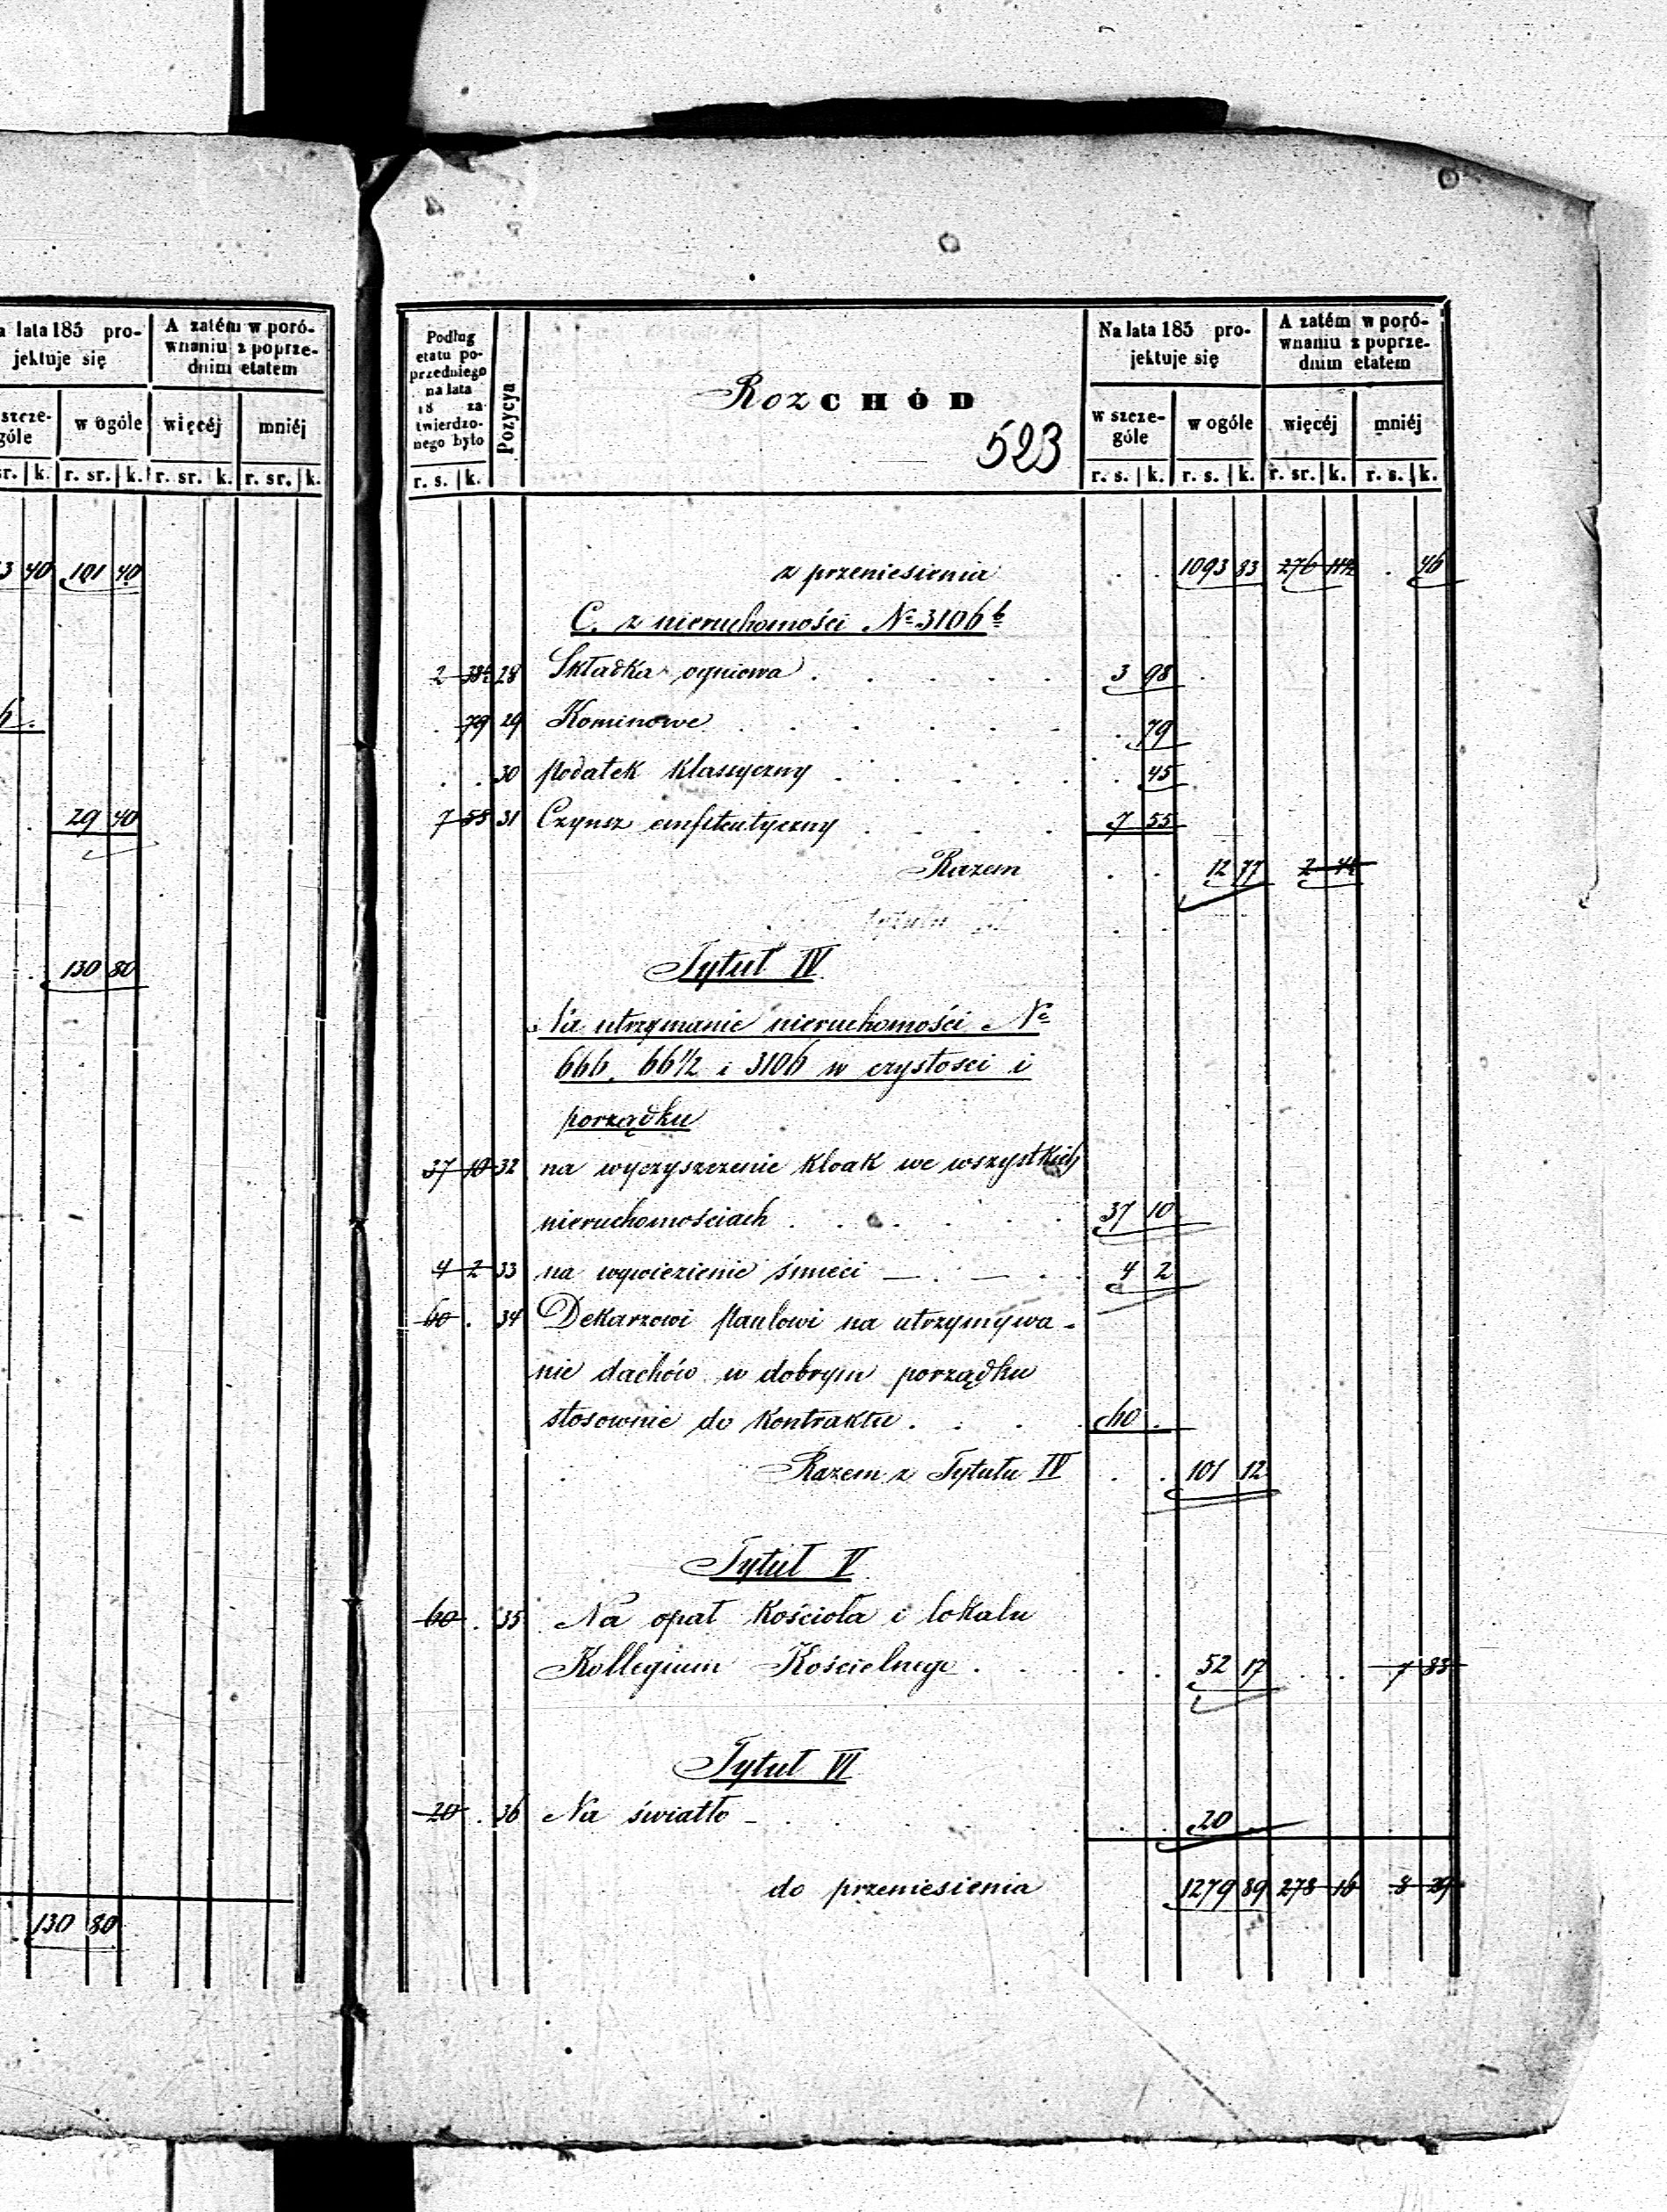 a lata 185 pro-
jektuje się
A zatém w poró-
wnaniu z poprze-
dnim etatem
szcze-
góle
w ogóle
więcéj
mniéj
sr. k. r. sr. k. r. sr. k. r. sr. k.
3 40 101 40
6 .
29 40
130 80
130 80
Podług
etatu po-
przedniego
na lata
18 za-
twierdzo-
nego było
Pozycya
RozCHÓD
523
Na lata 185 pro-
jektuje się
A zatém w poró-
wnaniu z poprze-
dnim etatem
w szcze-
góle
w ogóle
więcéj
mniéj
r. s. k. r. s. k. r. s. k. r. sr. k. r. s. k.
z przeniesienia . . 1093 83 276 . 46
C. z nieruchomości № 3106 b
2 38½ 28 Składka ogniowa . . . . . 3 98
. 79 29 Kominowe . . . . . . . 79
. . 30 podatek klassyczny . . . . . . 45
7 55 31 Czynsz emfiteutyczny . . . . 7 55
Razem . . 12 77 2 44
Tytuł IV
Na utrzymanie nieruchomości №
666. 66½ i 3106 w czystości i
porządku
37 10 32 na wyczyszczenie kloak we wszystkich
nieruchomościach . . . . . . 37 10
4 2 33 na wywiezienie śmieci — . — . 4 2
60 . 34 Dekarzowi Paulowi na utrzymywa-
nie dachów w dobrym porządku
stosownie do kontraktu . . . . 60 .
Razem z Tytułu IV . . 101 12
Tytuł V
60 . 35 Na opał Kościoła i lokalu
Kollegium Kościelnego . . . . . 52 17 . . 7 83
Tytuł VI
20 . 36 Na światło - . . . . . . . 20
do przeniesienia 1279 89 278 16 8 29